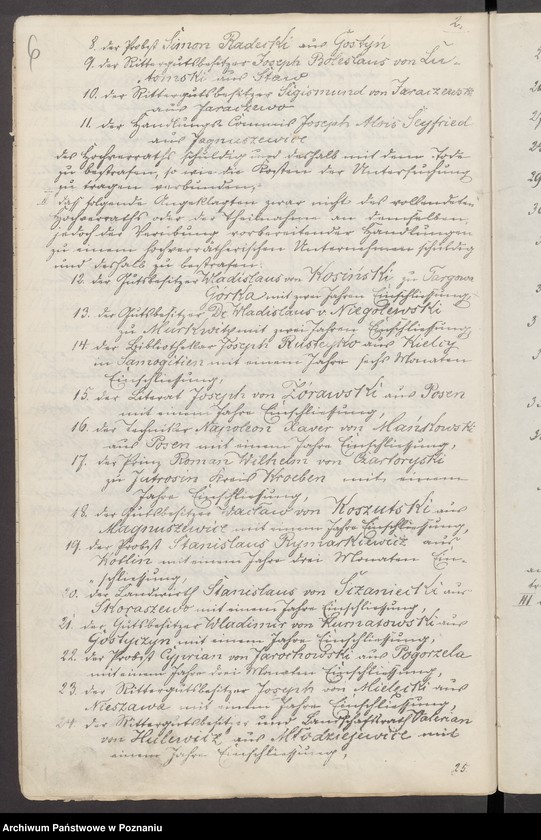 2.
6
8. der Probst Simon Radecki aus Gostyn
9. der Rittergutsbesitzer Joseph Boleslaus von Lu-
tomski aus Staw
10. der Rittergutsbesitzer Sigismund von Jaraczewski
aus Jaraczewo
11. der Handlungs-Commis Joseph Alois Seyfried
aus Magnuszewice
des Hochverraths schuldig und deshalb mit dem Tode
zu bestrafen, so wie die Kosten der Untersuchung
zu tragen verbunden;
II daß folgende Angeklagten zwar nicht des vollendeten
Hochverraths oder der Theilnahme an demselben,
jedoch der Verübung vorbereitender Handlungen
zu einem hochverrätherischen Unternehmen schuldig
und deshalb zu bestrafen:
12. der Gutsbesitzer Wladislaus von Kosinski zu Targowa
Gorka mit zwei Jahren Einschließung,
13. der Gutsbesitzer Dr. Wladislaus v. Niegolewski
zu Murkwitz mit zwei Jahren Einschließung,
14. der Bibliothekar Joseph Rusteyko aus Kielcy
in Samogitien mit einem Jahre sechs Monaten
Einschließung,
15. der Literat Joseph von Zórawski aus Posen
mit einem Jahre Einschließung,
16. der Techniker Napoleon Xaver von Mańkowski
aus Posen mit einem Jahre Einschließung,
17. der Prinz Roman Wilhelm von Czartoryski
zu Jutrosin Kreis Kroeben mit einem
Jahre Einschließung,
18. der Gutsbesitzer Waclaw von Koszutski aus
Magnuszewice mit einem Jahre Einschließung,
19. der Probst Stanislaus Rymarkiewicz aus
Kotlin mit einem Jahre drei Monaten Ein-
schließung,
20. der Landwirth Stanislaus von Sczaniecki aus
Skoraszewo mit einem Jahre Einschließung,
21. der Gutsbesitzer Wladimir von Kurnatowski aus
Gostyczyn mit einem Jahre Einschließung,
22. der Probst Cyprian von Jarochowski aus Pogorzela
mit einem Jahre drei Monaten Einschließung,
23. der Rittergutsbesitzer Joseph von Mielecki aus
Nieszawa mit einem Jahre Einschließung,
24. der Rittergutsbesitzer und Landschaftsrath Valerian
von Hulewicz aus Młodziejewice mit
einem Jahre Einschließung,
25.
III
Archiwum Państwowe w Poznaniu